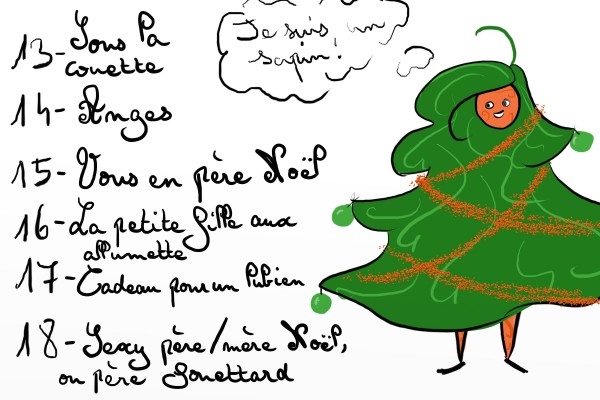 Je suis un
sapin !
13- Sous la
couette
14- Anges
15- Vous en père Noël
16- La petite fille aux
allumette
17- Cadeau pour un lutin
18- Sexy père/mère Noël,
ou père Fouettard